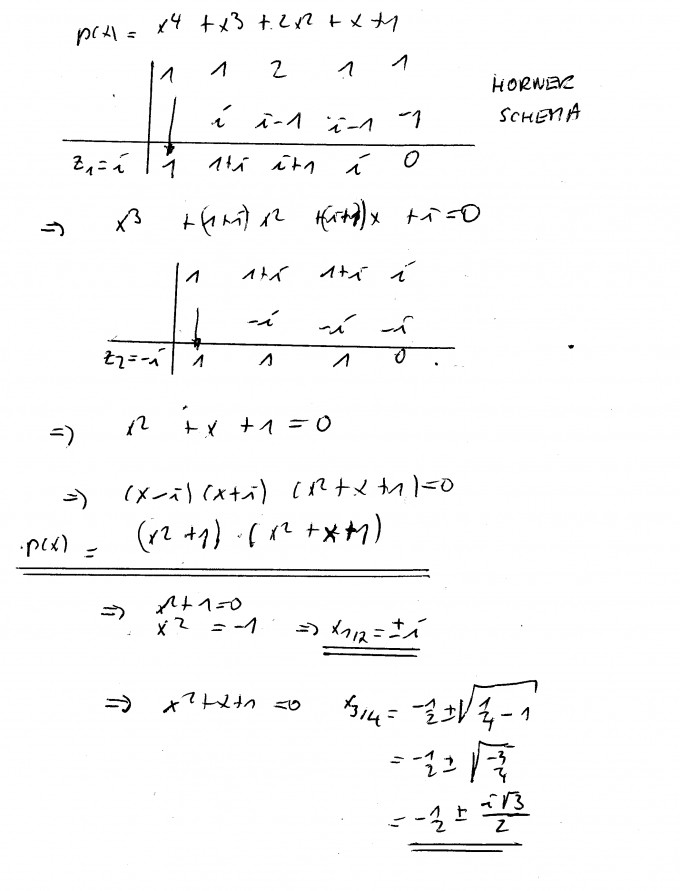 p(x) = x⁴ + x³ + 2x² + x + 1
1 1 2 1 1
HORNER
SCHEMA
i i-1 i-1 -1
z₁=i 1 1+i i+1 i 0
=> x³ +(1+i) x² +(i+1)x + i = 0
1 1+i 1+i i
-i -i -i
z₂=-i 1 1 1 0 .
=> x² + x + 1 = 0
=> (x-i) (x+i) (x² + x + 1) = 0
p(x) = (x² + 1) · (x² + x + 1)
=> x² + 1 = 0
x² = -1 => x₁/₂ = ± i
=> x² + x + 1 = 0 x₃/₄ = -1/2 ± √(1/4 - 1)
= -1/2 ± √(-3/4)
= -1/2 ± i√3/2